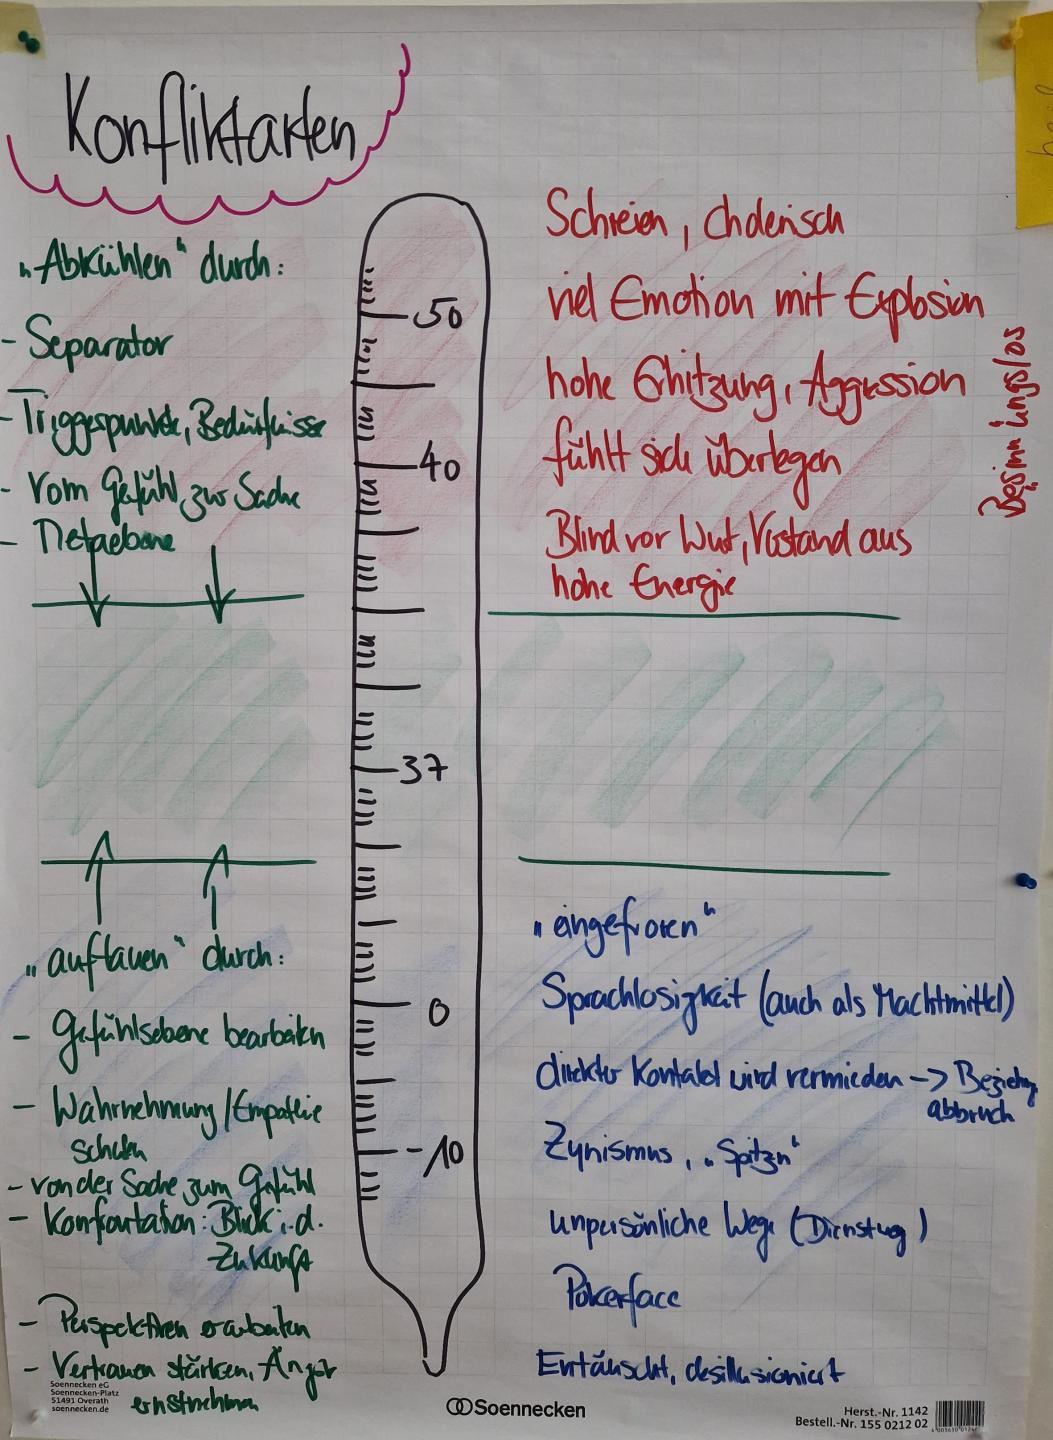 Konfliktarten
„Abkühlen" durch:
- Separator
- Triggerpunkte, Bedürfnisse
- Vom Gefühl zur Sache
- Metaebene
50
40
37
0
-10
Schreien, cholerisch
viel Emotion mit Explosion
hohe Erhitzung, Aggression
fühlt sich überlegen
Blind vor Wut, Verstand aus
hohe Energie
Besinnungslos
„auftauen" durch:
- Gefühlsebene bearbeiten
- Wahrnehmung/Empathie
schulen
- von der Sache zum Gefühl
- Konfrontation: Blick i. d.
Zukunft
- Perspektiven erarbeiten
- Vertrauen stärken, Angst
ernstnehmen
„eingefroren"
Sprachlosigkeit (auch als Machtmittel)
direkter Kontakt wird vermieden -> Beziehungs
abbruch
Zynismus, „Spitzen"
unpersönliche Wege (Dienstweg)
Pokerface
Enttäuscht, desillusioniert
Soennecken eG
Soennecken-Platz
51491 Overath
soennecken.de
Soennecken
Herst.-Nr. 1142
Bestell.-Nr. 155 0212 02